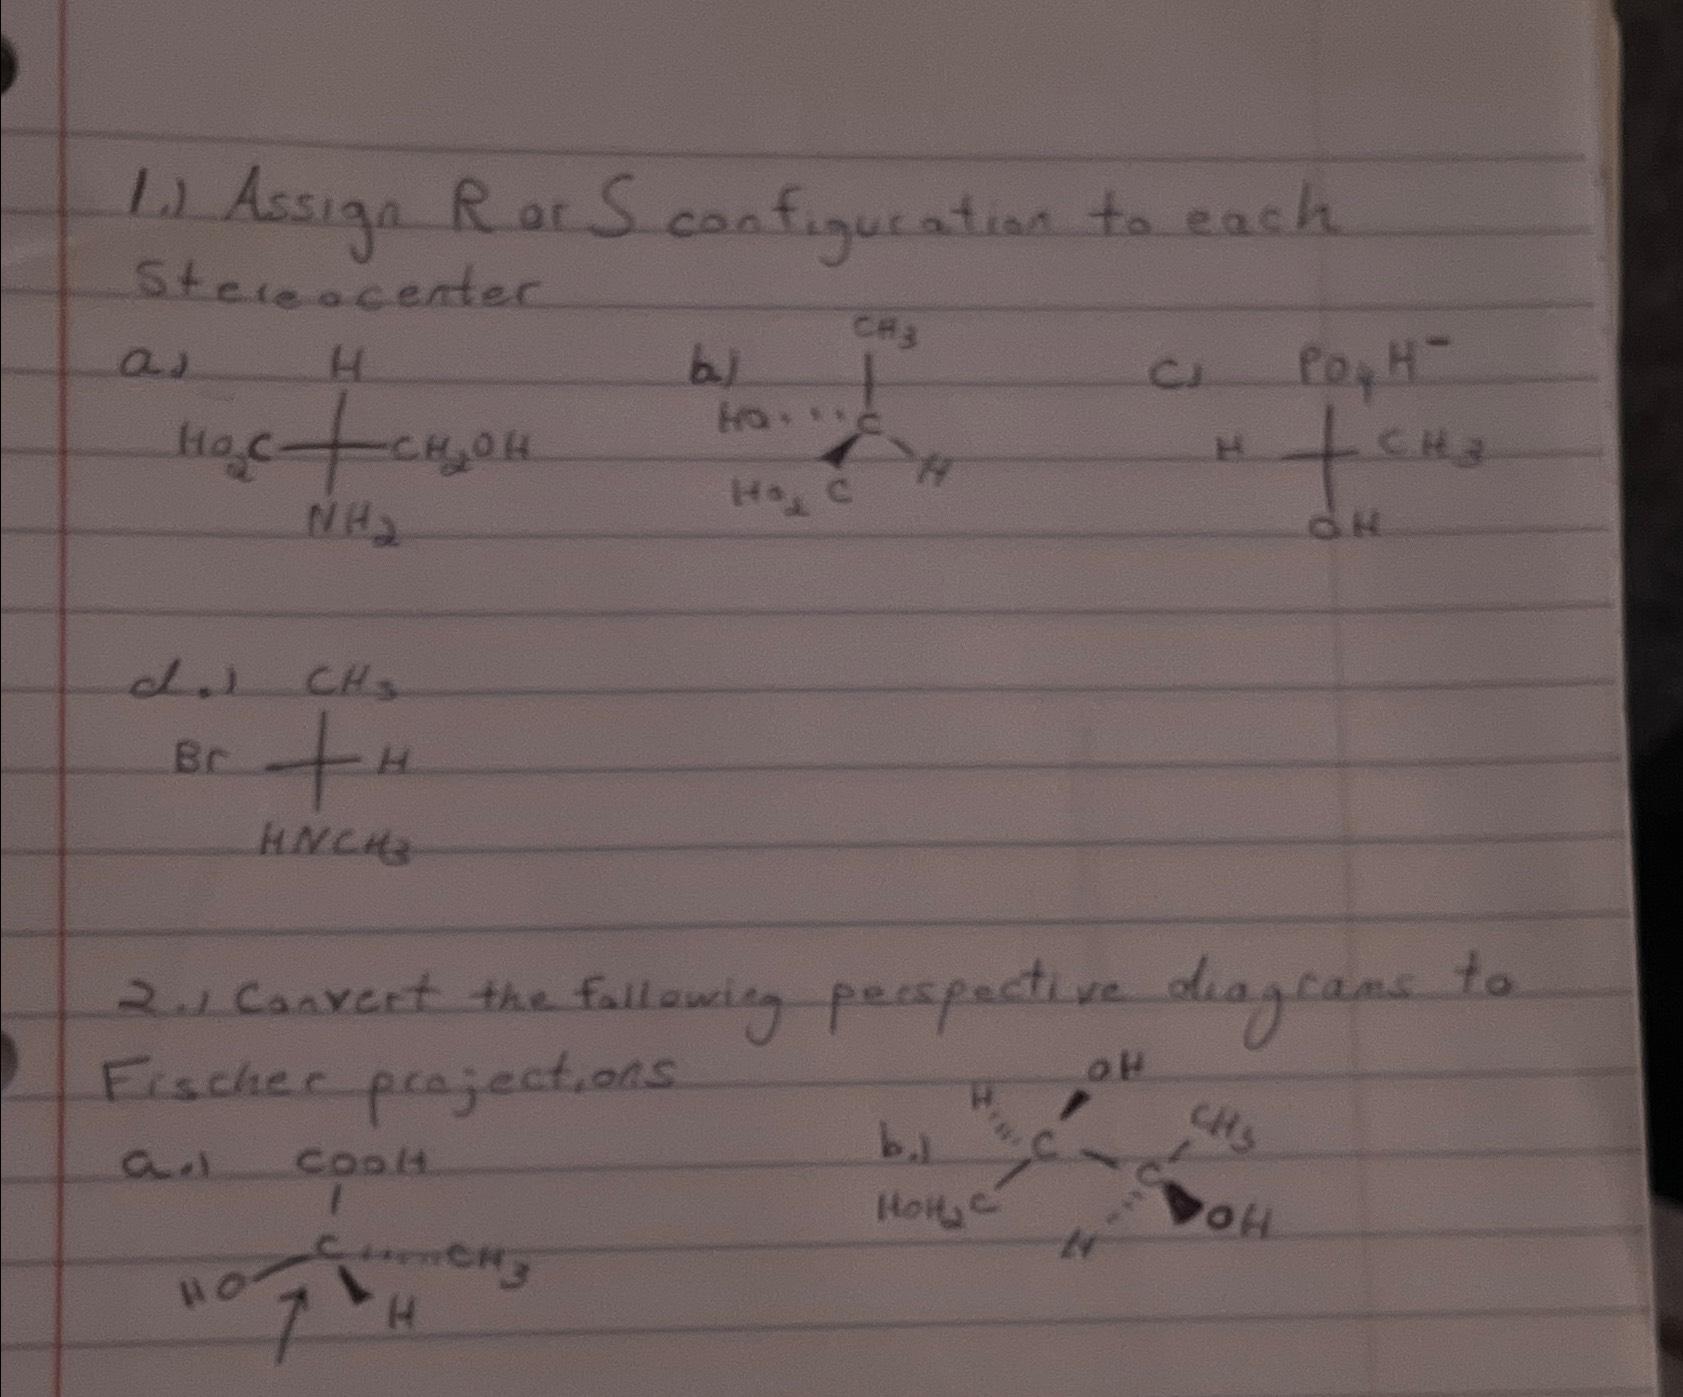 1.) Assign R or S configuration to each
stereocenter
a.) H
HO₂C CH₂OH
NH₂
b.) CH₃
HO C
HO₂C H
c.) PO₄H⁻
H CH₃
OH
d.) CH₃
Br H
HNCH₃
2.) Convert the following perspective diagrams to
Fischer projections
a.) COOH
C CH₃
HO H
b.) H OH
C CH₃
HOH₂C C
H OH